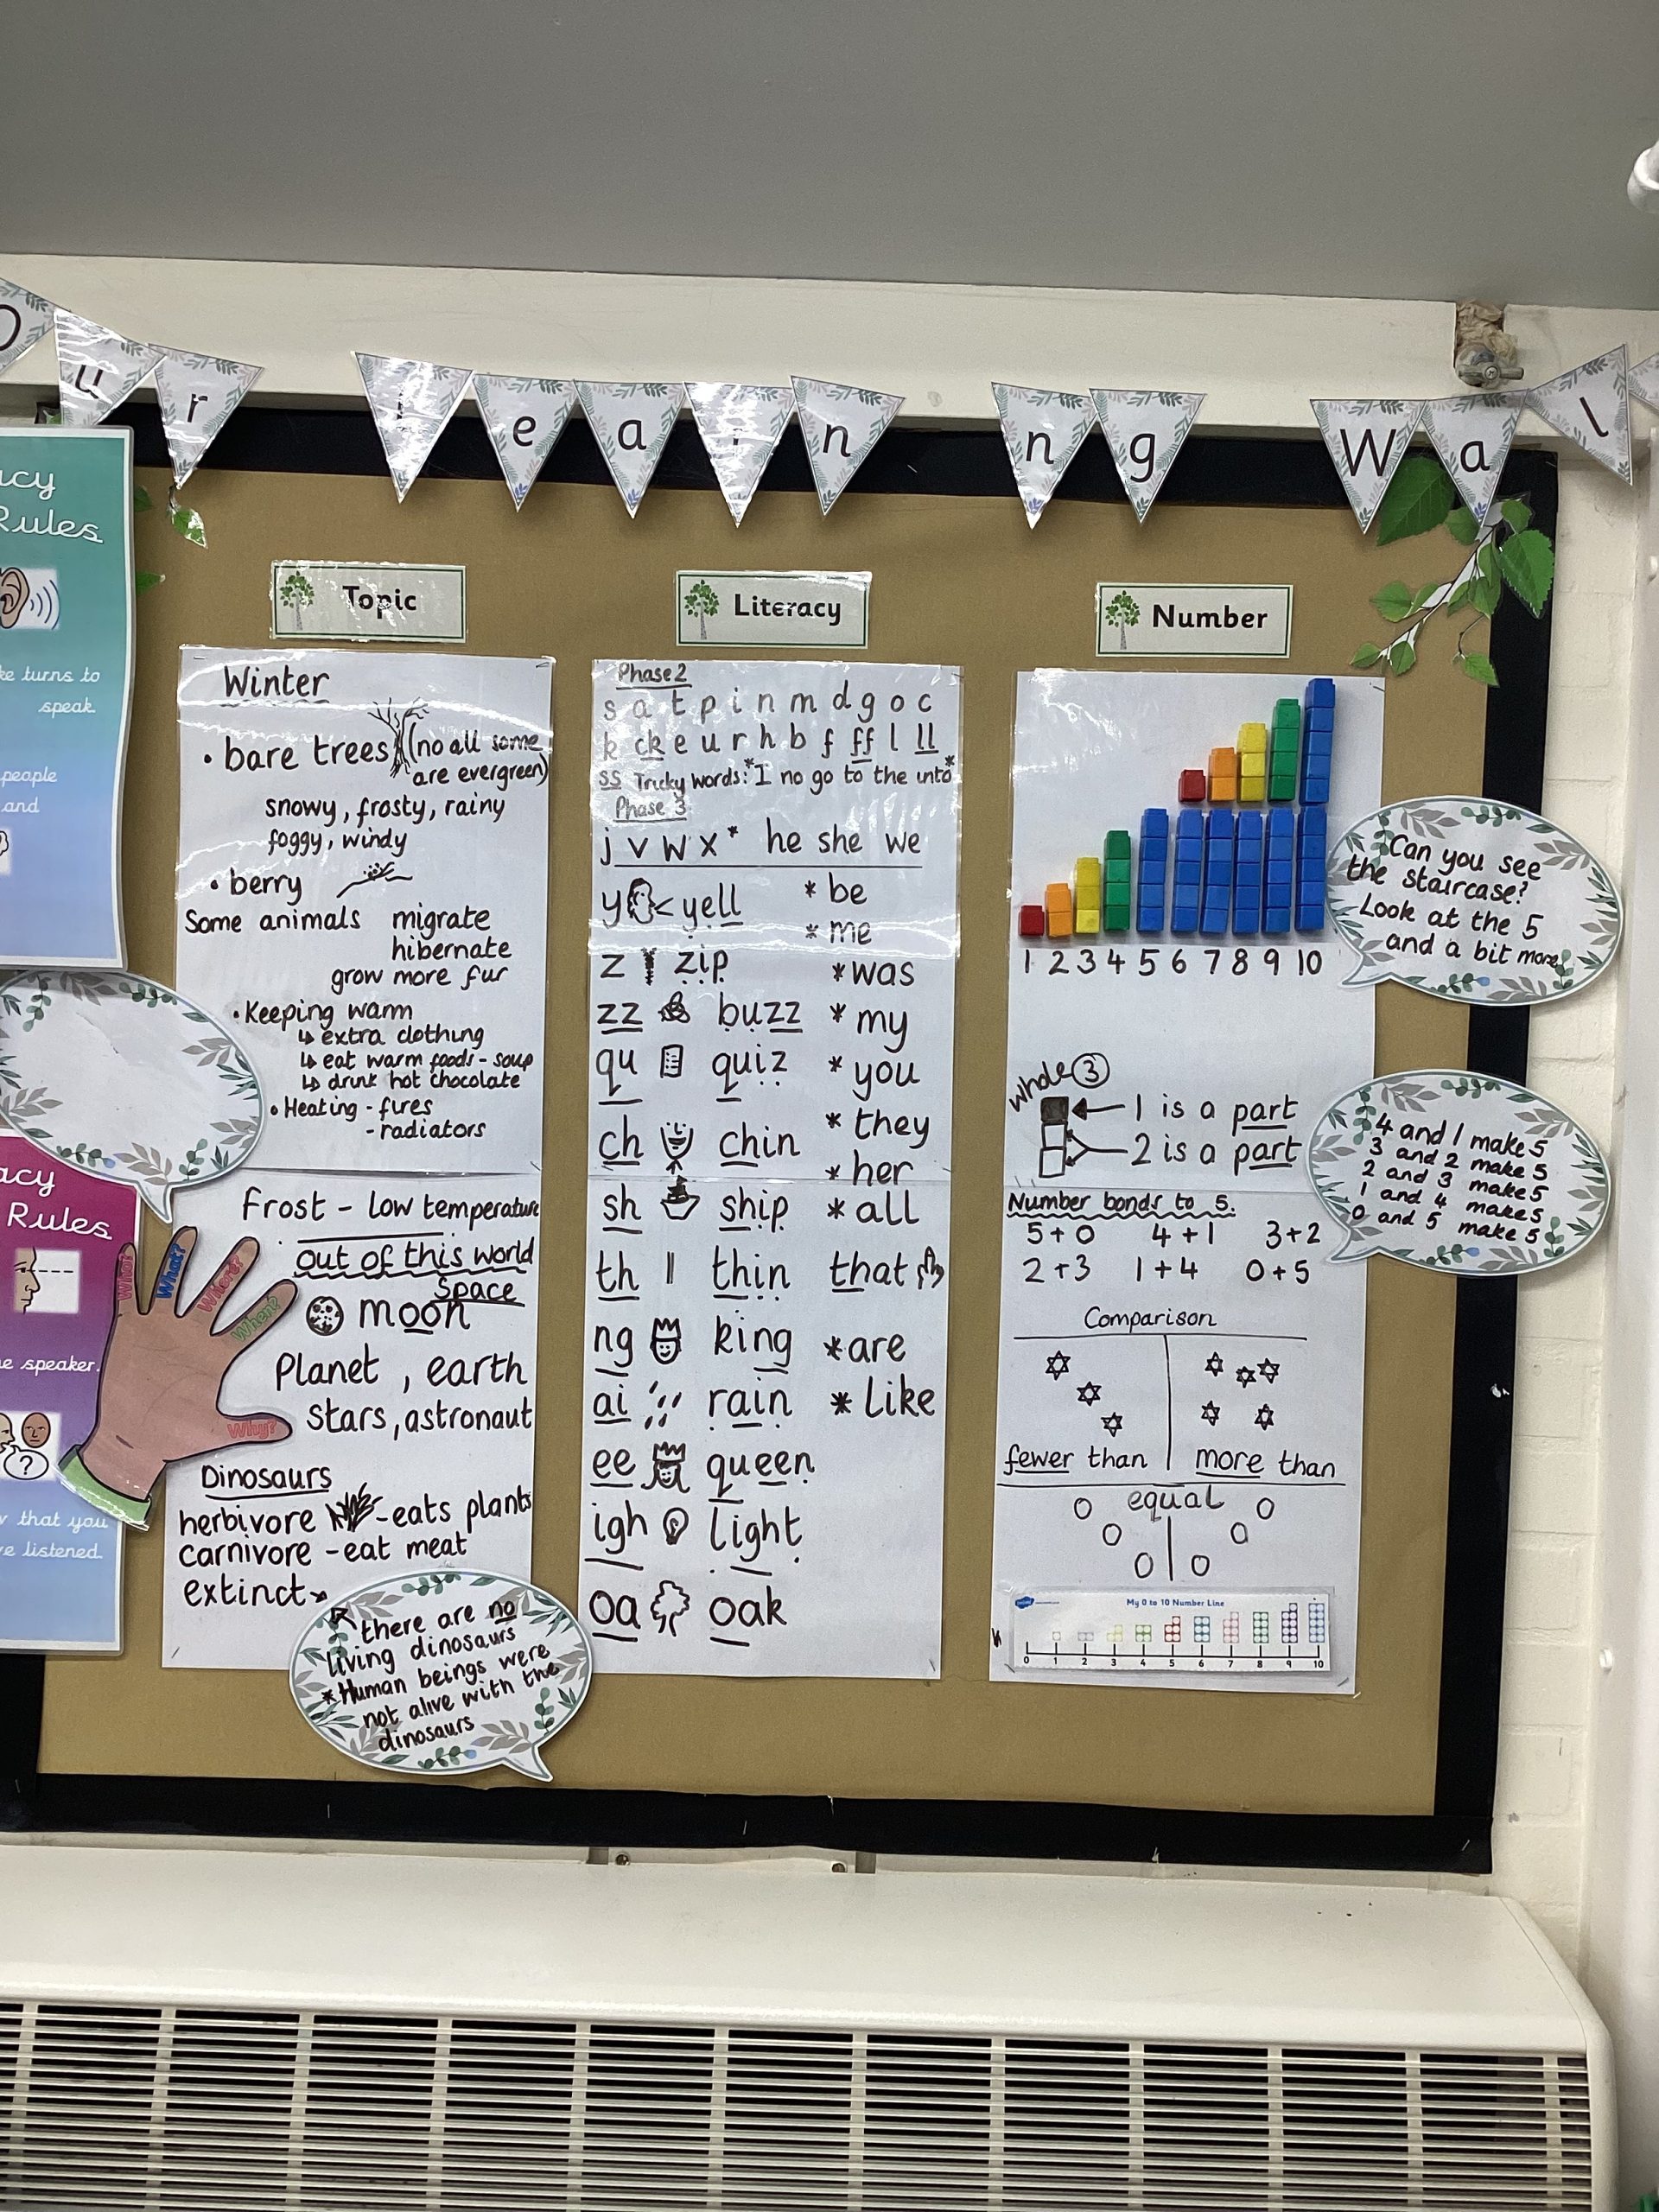 Our learnng Wal
acy
Rules
ke turns to
speak.
people
and
acy
Rules
e speaker.
that you
ve listened.
Who?
What?
Where?
When?
Why?
Topic
Winter
• bare trees (no all some
are evergreen)
snowy, frosty, rainy
foggy, windy
• berry
Some animals migrate
hibernate
grow more fur
• Keeping warm
↳ extra clothing
↳ eat warm foods - soup
↳ drink hot chocolate
• Heating - fires
- radiators
Frost - low temperature
out of this world
Space
moon
Planet, earth
Stars, astronaut
Dinosaurs
herbivore - eats plants
carnivore - eat meat
extinct
there are no
living dinosaurs
*Human beings were
not alive with the
dinosaurs
Literacy
Phase 2
s a t p i n m d g o c
k ck e u r h b f ff l ll
ss Tricky words:* I no go to the into*
Phase 3
j v w x * he she we
y yell * be
* me
z zip * was
zz buzz * my
qu quiz * you
ch chin * they
* her
sh ship * all
th thin that
ng king * are
ai rain * like
ee queen
igh light
oa oak
Number
1 2 3 4 5 6 7 8 9 10
Can you see
the staircase?
Look at the 5
and a bit more
whole 3
1 is a part
2 is a part
4 and 1 make 5
3 and 2 make 5
2 and 3 make 5
1 and 4 make 5
0 and 5 make 5
Number bonds to 5.
5+0 4+1 3+2
2+3 1+4 0+5
Comparison
fewer than more than
equal
My 0 to 10 Number Line
0 1 2 3 4 5 6 7 8 9 10